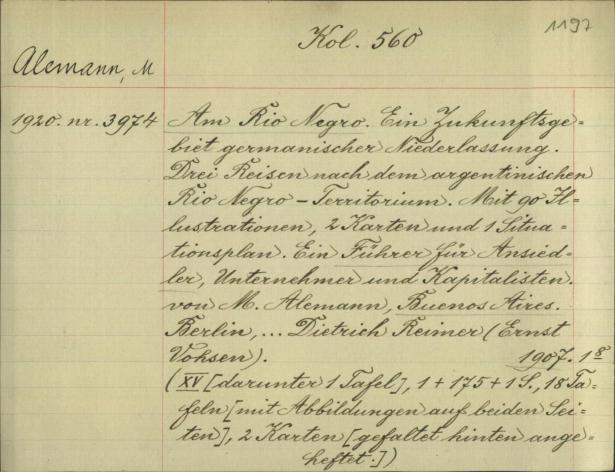 1197
Kol. 560
Alemann, M
1920. nr. 3974 Am Rio Negro. Ein Zukunftsge=
biet germanischer Niederlassung.
Drei Reisen nach dem argentinischen
Rio Negro-Territorium. Mit 90 Il=
lustrationen, 2 Karten und 1 Situa=
tionsplan. Ein Führer für Ansied=
ler, Unternehmer und Kapitalisten.
von M. Alemann, Buenos Aires.
Berlin, ... Dietrich Reimer (Ernst
Vohsen). 1907. 1 8
(XV [darunter 1 Tafel], 1+175+1 S., 18 Ta=
feln [mit Abbildungen auf beiden Sei=
ten], 2 Karten [gefaltet hinten ange=
heftet.])